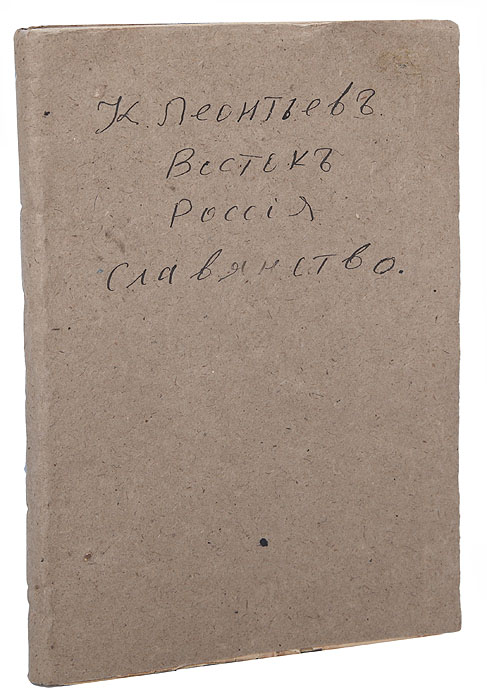 К. Леонтьевъ.
Востокъ
Россія
Славянство.